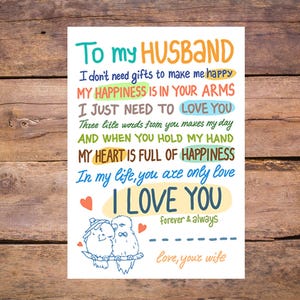 To my HUSBAND
I don't need gifts to make me happy
MY HAPPINESS IS IN YOUR ARMS
I JUST NEED TO LOVE YOU
Three little words from you makes my day
AND WHEN YOU HOLD MY HAND
MY HEART IS FULL OF HAPPINESS
In my life, you are only love
I LOVE YOU
forever & always
love, your wife